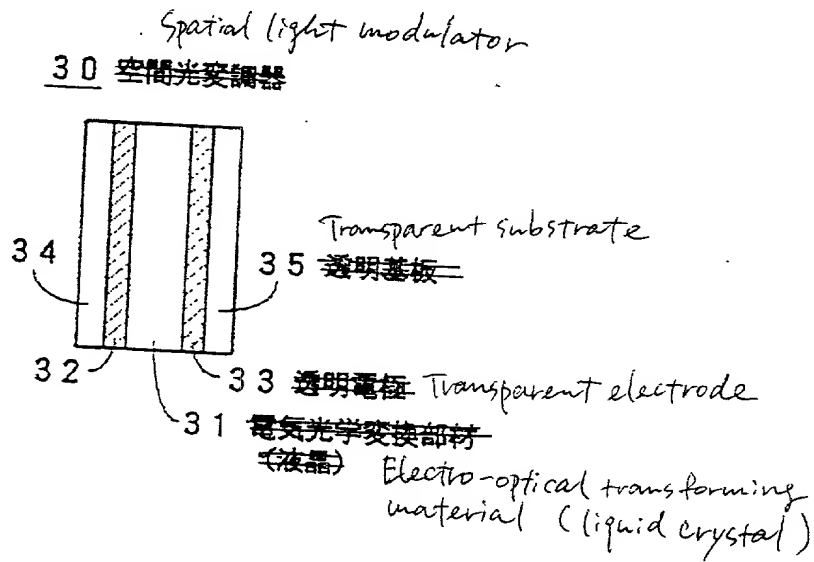 Spatial light modulator
30 空間光変調器
Transparent substrate
34
35 透明基板
32
33 透明電極 Transparent electrode
31 電気光学変換部材
(液晶)
Electro-optical transforming
material (liquid crystal)